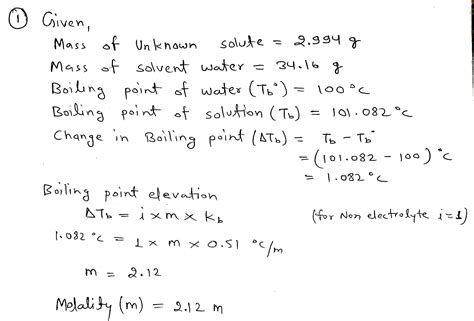 ① Given,
Mass of Unknown solute = 2.994 g
Mass of solvent water = 34.16 g
Boiling point of water (Tb°) = 100 °C
Boiling point of solution (Tb) = 101.082 °C
Change in Boiling point (ΔTb) = Tb - Tb°
= (101.082 - 100) °C
= 1.082 °C
Boiling point elevation
ΔTb = i × m × Kb (for Non electrolyte i=1)
1.082 °C = 1 × m × 0.51 °C/m
m = 2.12
Molality (m) = 2.12 m